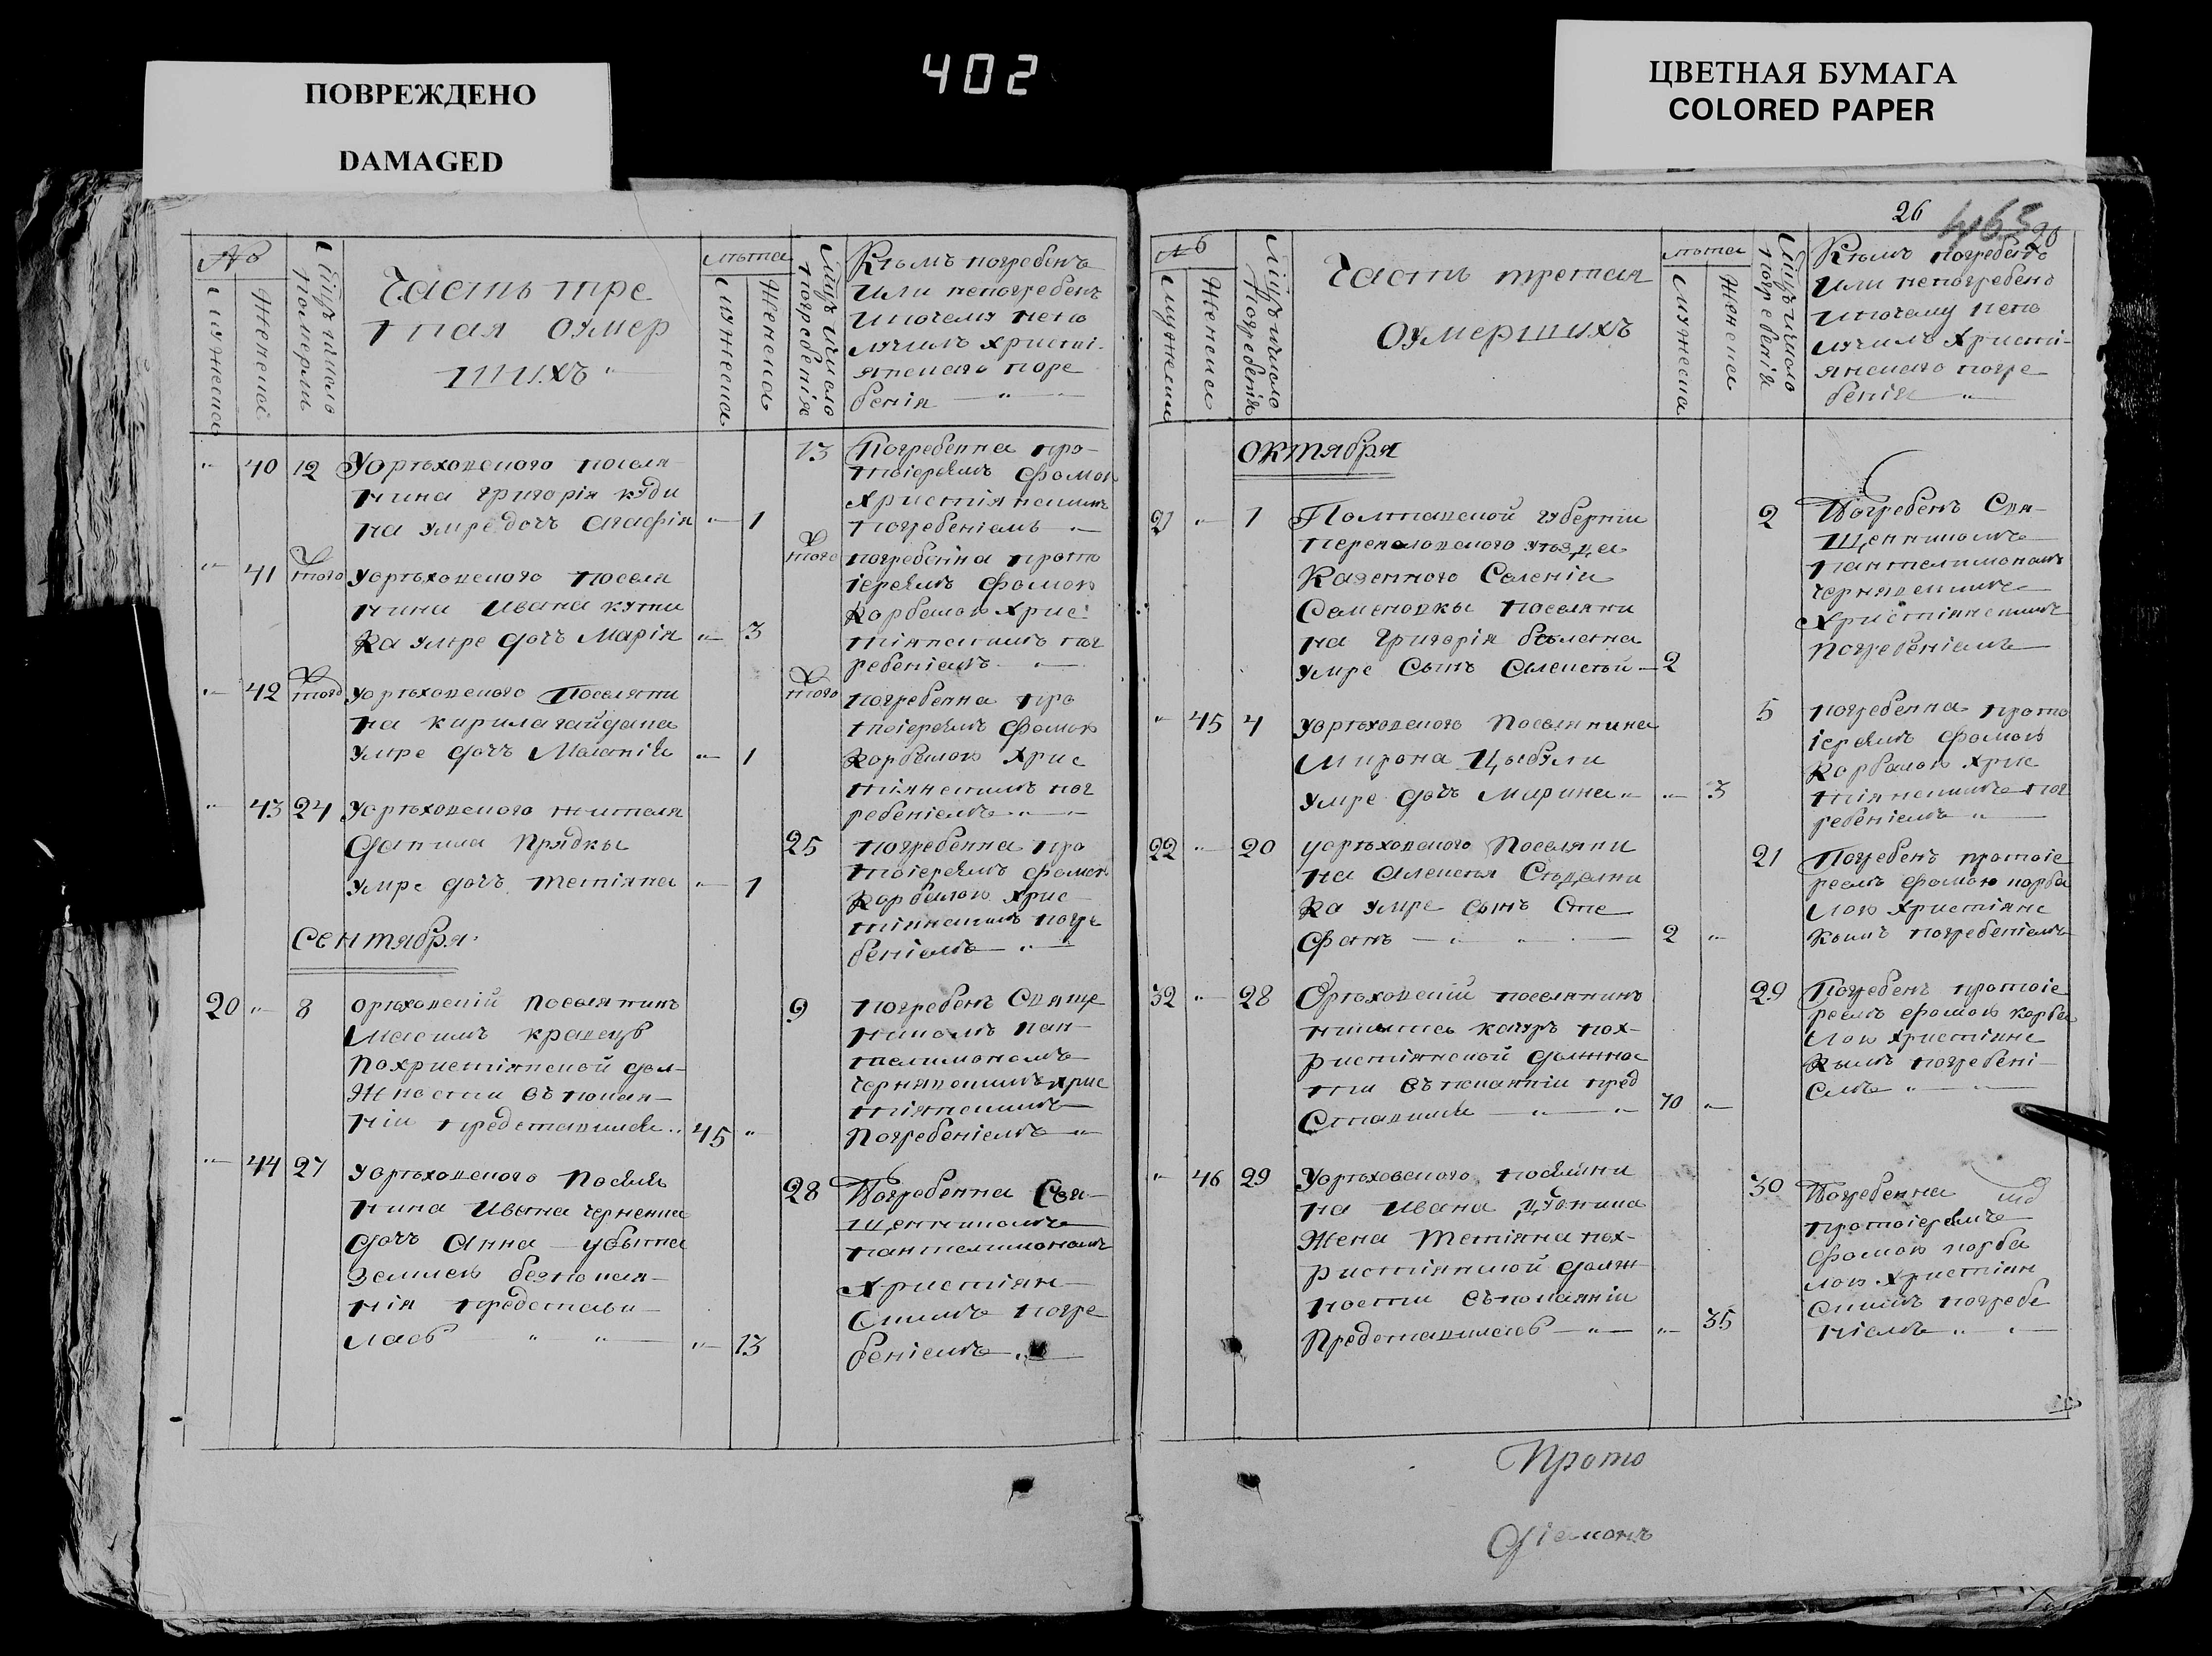 402
ПОВРЕЖДЕНО
DAMAGED
ЦВЕТНАЯ БУМАГА
COLORED PAPER
№
мужеска
Женска
Мцъ ичисло
Померли
Часть тре
тпая Оумер
шихъ
лѣта
мужеска
Женска
Мцъ ичисло
погребенія
Кѣмъ погребенъ
Или непогребенъ
Ипочему непо
лучилъ христі-
янскаго погре
бенія
40 12 Уорѣховского поселя
нина григорія куди
на умре дочъ агафія 1
13 Погребенна про-
тоіереємъ фомою
Христіянскимъ
погребеніемъ
41 того Уорѣховского поселя
нина Ивана кутки
Ка умре дочъ Марія 3
того погребенна прото
іереємъ фомою
Корбаною Хрис
тіянскимъ пог
ребеніемъ
42 того Уорѣховского Поселяни
на кирила гайдана
Умре дочъ Маланія 1
того погребенна про
тоіереємъ фомою
Хрис
тіянскимъ пог
ребеніемъ
43 24 Уорѣховского жителя
Данила Прядки
Умре дочъ Тетіяна 1
25 погребенна про
тоіереємъ фомою
Хрис
тіянскимъ погре
беніемъ
Сентября
20 8 орѣховскій поселянинъ
Максимъ кравецъ
Похристіянской дол-
Жности съ покая-
ніи представился 45
9 погребенъ Свяще
никомъ пан-
телимономъ
чернявскимъ хрис
тіянскимъ
Погребеніемъ
44 27 Уорѣховского Поселя
нина Ивана черненка
дочъ Анна убытна
Землею безпокая-
нія представи-
лась 13
28 Погребенна Свя-
щенникомъ
пантелимономъ
Христіян-
Скимъ погре
беніемъ
26
463
№
мужеска
Женска
Мцъ ичисло
Погребенія
Часть третая
Оумершихъ
лѣта
мужеска
Женска
Мцъ ичисло
погребенія
Кѣмъ погребенъ
Или непогребенъ
Ипочему непо
лучилъ Христі-
янскаго погре-
бенія
Октября
21 1 Полтавской губерніи
переколовского уѣзда
Казенного Селеніи
Семеновки поселяни
на григорія
умре Сынъ Алексѣй 2
2 Погребенъ Свя-
щенникомъ
пантелимономъ
чернявскимъ
Христіянскимъ
погребеніемъ
45 4 Уорѣховского Поселянина
Мирона Цыбули
умре дочъ Марина 3
5 погребенна прото
іереємъ фомою
Хрис
тіянскимъ пог
ребеніемъ
22 20 уорѣховского Поселяни
на Алексѣя Сѣделни
Ка умре сынъ Сте
фанъ 2
21 Погребенъ протоіе
реємъ фомою корба
ною Христіянс
кимъ погребеніемъ
32 28 Орѣховскій поселянинъ
качуръ пох-
ристіянской должнос
ти съ покаяніи пред
Ставился 70
29 Погребенъ протоіе
реємъ фомою корба
ною Христіянс
кимъ погребені-
емъ
46 29 Уорѣховского поселяни
на Ивана
Жена Тетіяна пох-
ристіянской долж-
ности съ покаяніи
Представилась 35
30 Погребенна
протоіереємъ
фомою корба
ною Христіян
Скимъ погребе
ніемъ
Прото
Діаконъ